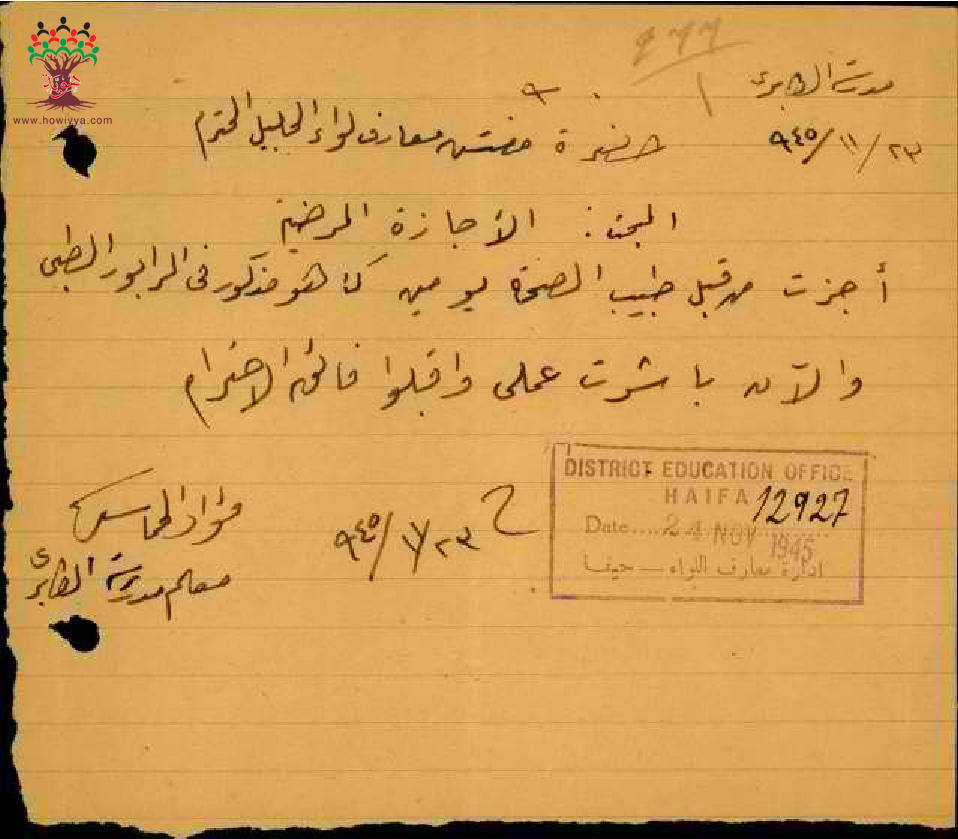 مدرسة الطابري
٢٣/١١/٩٤٥
٩٦٦
حضرة مفتش معارف لواء الجليل المحترم
المبحث: الأجازة المرضية
أجزت من قبل طبيب الصحة يومين كما هو مذكور في الرابور الطبي
والآن باشرت عملي واقبلوا فائق الاحترام
٢٣/١١/٩٤٥
فؤاد
معلم مدرسة الطابري
DISTRICT EDUCATION OFFICE
HAIFA 12927
Date.... 24 NOV 1945
ادارة معارف اللواء — حيفا
www.howiyya.com